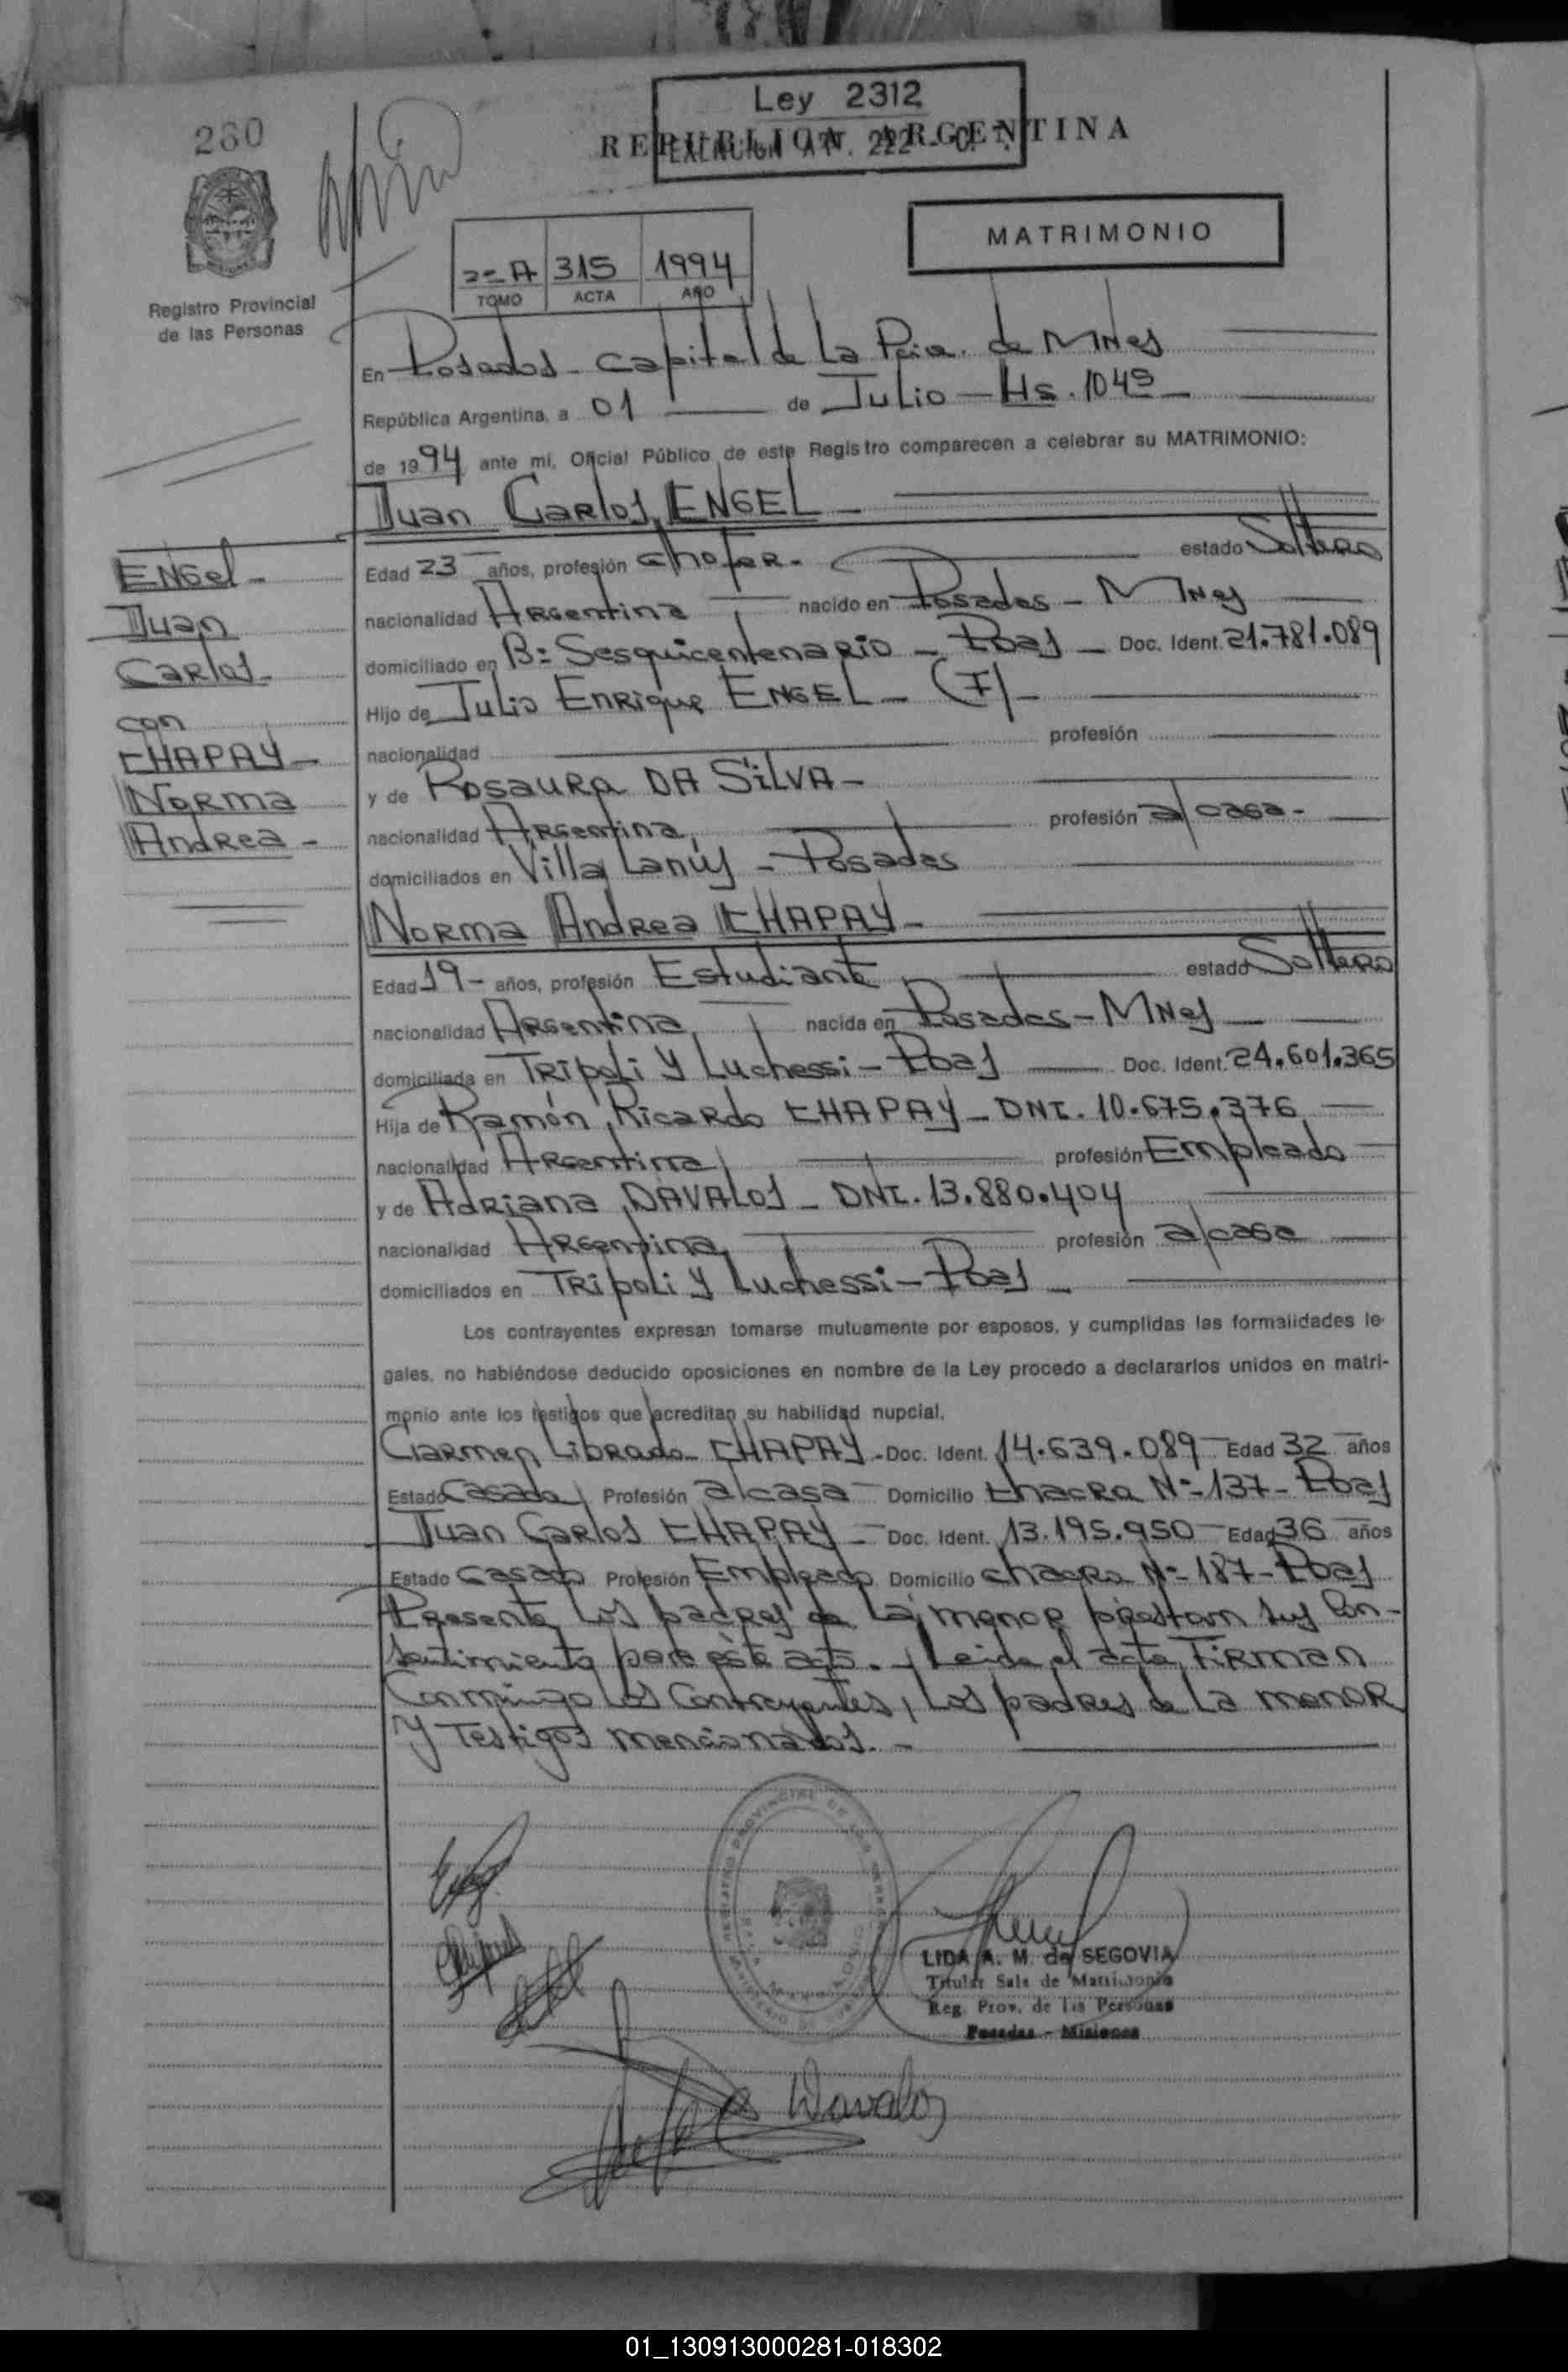 Ley 2312
REPUBLICA ARGENTINA
280
MATRIMONIO
2º A 315 1994
TOMO ACTA AÑO
Registro Provincial
de las Personas
En Posadas - Capital de La Pcia. de MNes
República Argentina, a 01 de Julio - Hs. 1045
de 1994 ante mi, Oficial Público de este Registro comparecen a celebrar su MATRIMONIO:
Juan Carlos ENGEL -
Edad 23 años, profesión chofer - estado Soltero
nacionalidad Argentina nacido en Posadas - MNes
domiciliado en Bº Sesquicentenario - Pdas - Doc. Ident. 21.781.089
Hijo de Julio Enrique ENGEL - (F) -
nacionalidad profesión
y de Rosaura DA SILVA -
nacionalidad Argentina profesión a/casa -
domiciliados en Villa Lanús - Posadas
Norma Andrea CHAPAY -
Edad 19 - años, profesión Estudiante estado Soltera
nacionalidad Argentina nacida en Posadas - MNes
domiciliada en Tripoli y Luchessi - Pdas Doc. Ident. 24.601.365
Hija de Ramón Ricardo CHAPAY - DNI. 10.675.376
nacionalidad Argentina profesión Empleado
y de Adriana DAVALOS - DNI. 13.880.404
nacionalidad Argentina profesión a/casa
domiciliados en Tripoli y Luchessi - Pdas -
Los contrayentes expresan tomarse mutuamente por esposos, y cumplidas las formalidades le-
gales, no habiéndose deducido oposiciones en nombre de la Ley procedo a declararlos unidos en matri-
monio ante los testigos que acreditan su habilidad nupcial.
Carmen Librada CHAPAY - Doc. Ident. 14.639.089 Edad 32 años
Estado Casada Profesión a/casa Domicilio Chacra Nº 137 - Pdas
Juan Carlos CHAPAY - Doc. Ident. 13.195.950 Edad 36 años
Estado Casado Profesión Empleado Domicilio chacra Nº 187 - Pdas
Presente los padres de La menor prestan sus Con-
sentimiento para este acto. - Leida el acta, Firman
Conmingo Los Contrayentes, Los padres de La menor
Y Testigos mencionados. -
ENGEL -
Juan
Carlos -
con
CHAPAY -
Norma
Andrea -
LIDA A. M. de SEGOVIA
Titular Sala de Matrimonio
Reg. Prov. de las Personas
Posadas - Misiones
Davalos
01_130913000281-018302